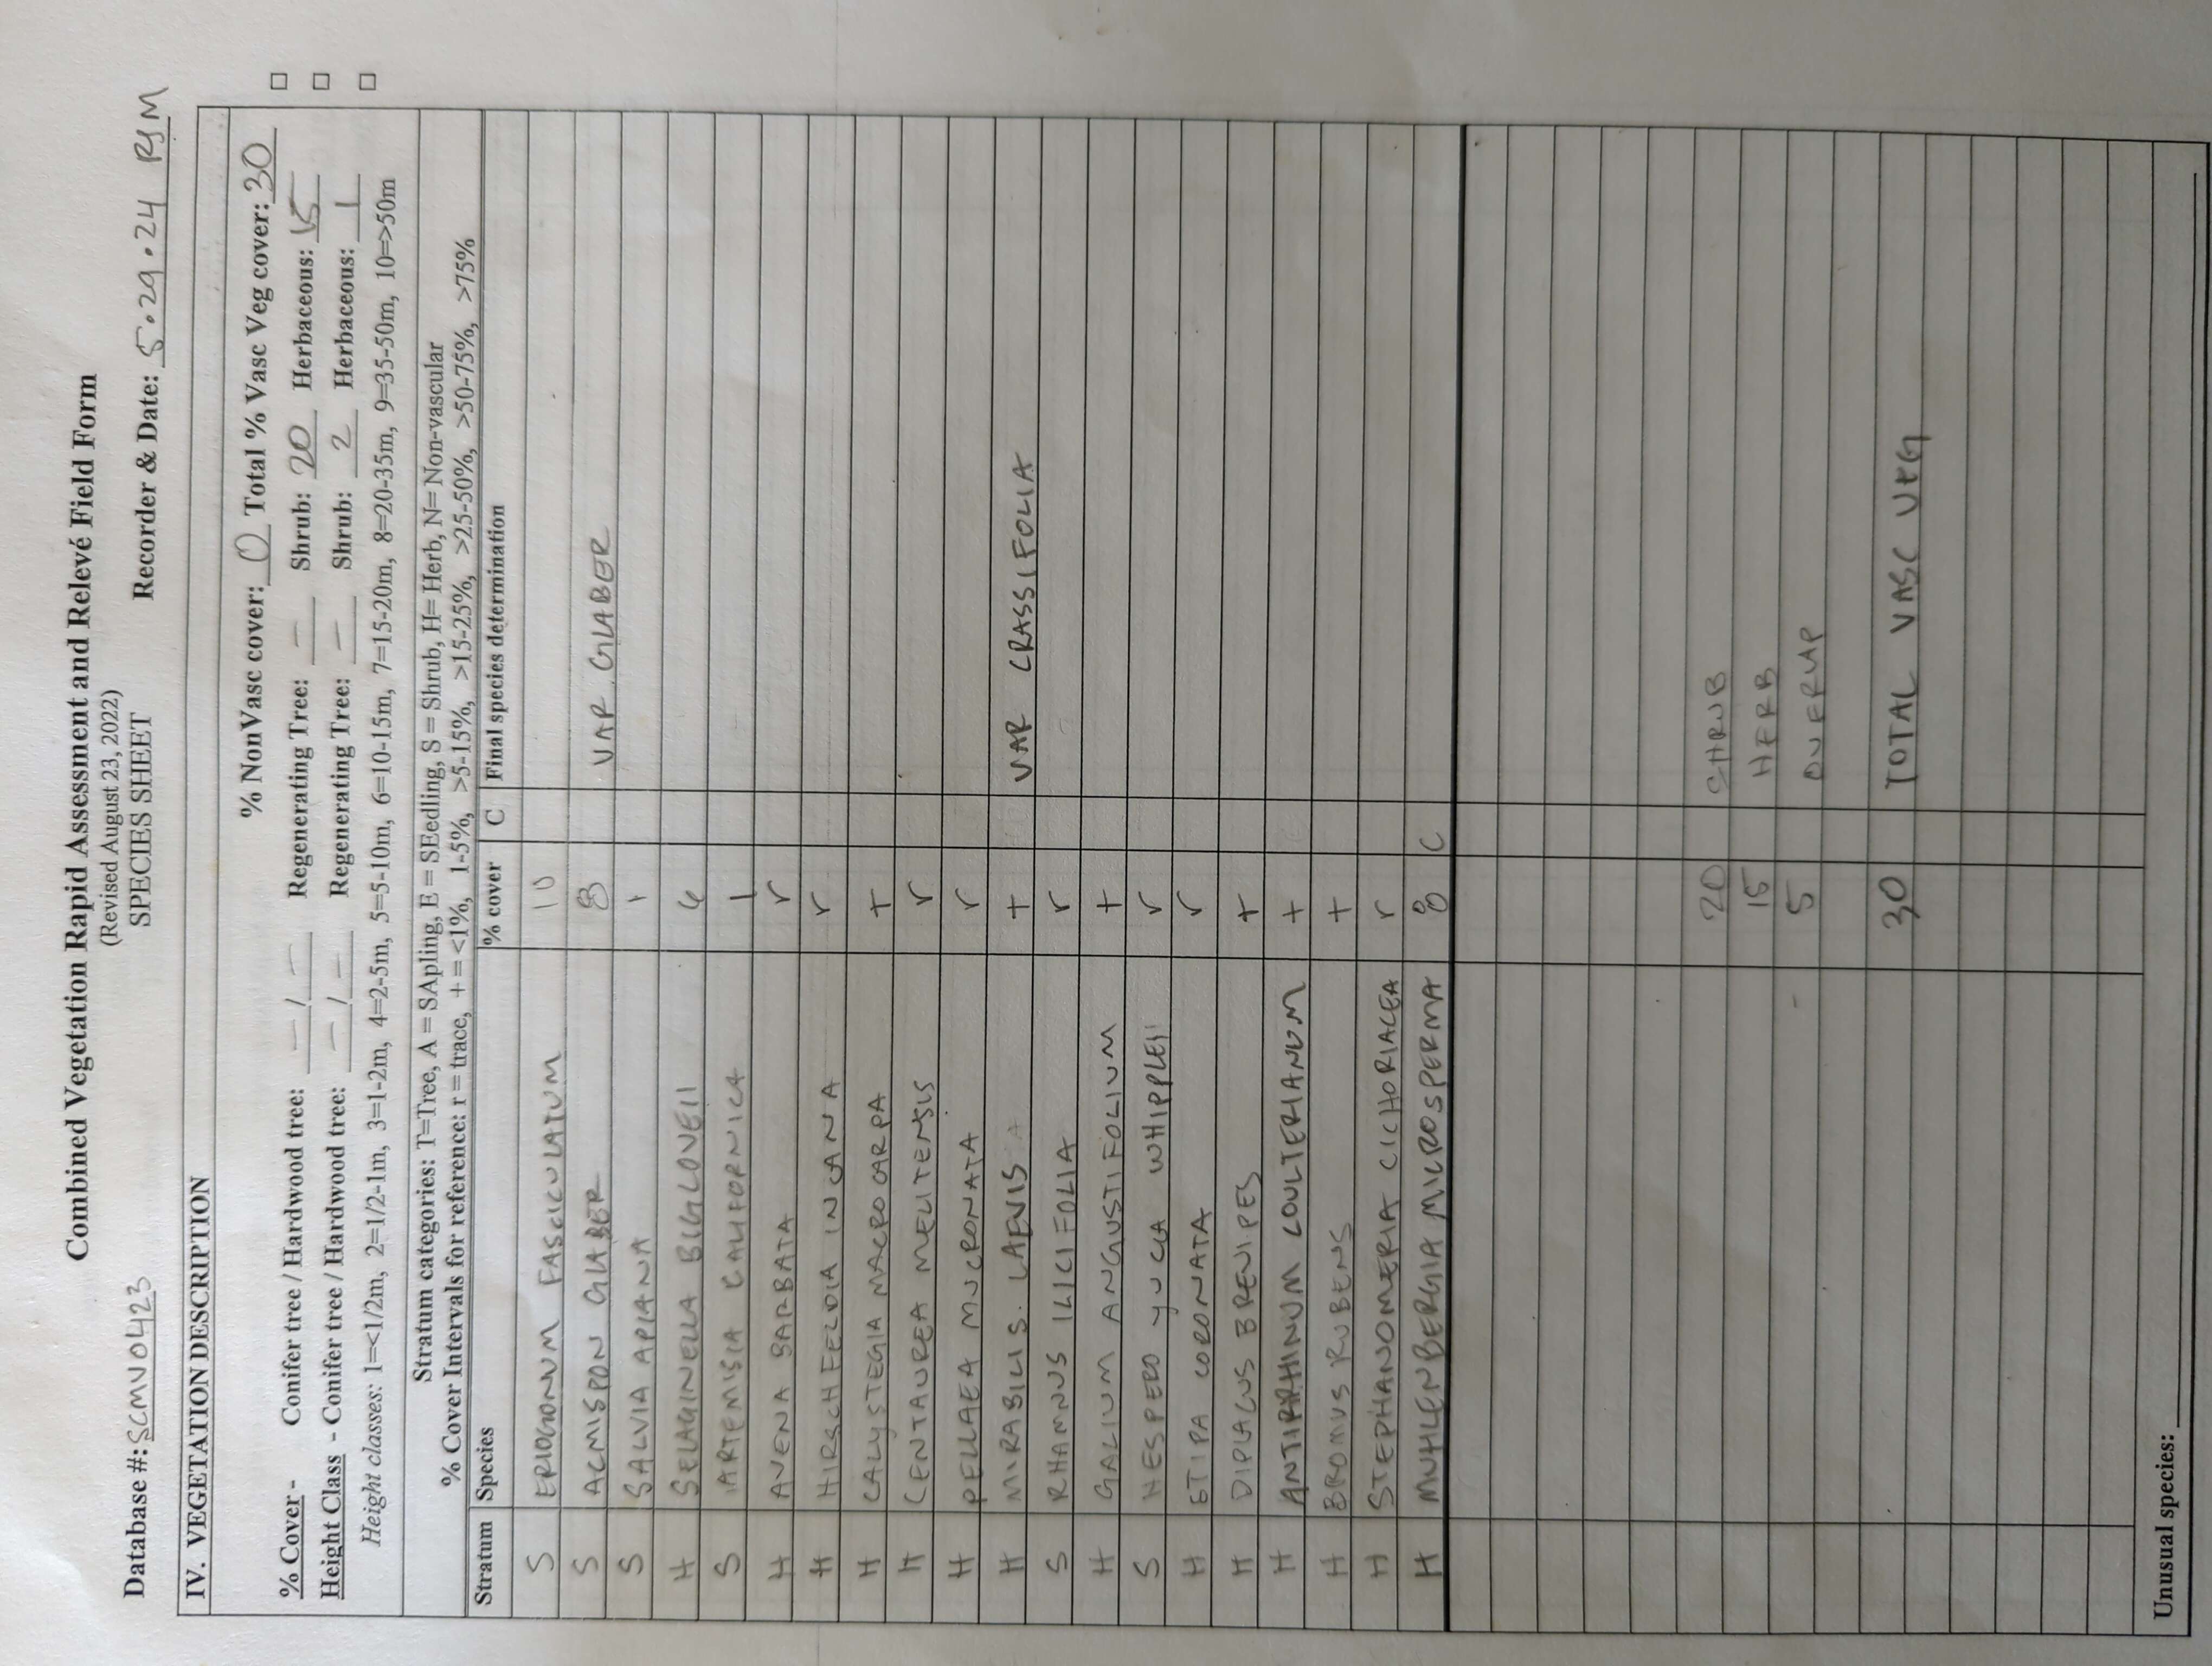 Combined Vegetation Rapid Assessment and Relevé Field Form
(Revised August 23, 2022)
SPECIES SHEET
Database #: SCMV0423 Recorder & Date: 5.29.24 RJM
IV. VEGETATION DESCRIPTION
% NonVasc cover: 0 Total % Vasc Veg cover: 30 □
% Cover - Conifer tree / Hardwood tree: - / - Regenerating Tree: - Shrub: 20 Herbaceous: 15 □
Height Class - Conifer tree / Hardwood tree: - / - Regenerating Tree: - Shrub: 2 Herbaceous: 1 □
Height classes: 1=<1/2m, 2=1/2-1m, 3=1-2m, 4=2-5m, 5=5-10m, 6=10-15m, 7=15-20m, 8=20-35m, 9=35-50m, 10=>50m
Stratum categories: T=Tree, A = SApling, E = SEedling, S = Shrub, H= Herb, N= Non-vascular
% Cover Intervals for reference: r = trace, + = <1%, 1-5%, >5-15%, >15-25%, >25-50%, >50-75%, >75%
Stratum Species % cover C Final species determination
S ERIOGONUM FASCICULATUM 10
S ACMISPON GLABER 8 VAR GLABER
S SALVIA APIANA 1
H SELAGINELLA BIGLOVEII 6
S ARTEMISIA CALIFORNICA 1
H AVENA BARBATA r
H HIRSCHFELDIA INCANA r
H CALYSTEGIA MACROCARPA +
H CENTAUREA MELITENSIS r
H PELLAEA MUCRONATA r
H MIRABILIS LAEVIS + VAR CRASSIFOLIA
S RHAMNUS ILICIFOLIA r
H GALIUM ANGUSTIFOLIUM +
S HESPEROYUCCA WHIPPLEI r
H STIPA CORONATA r
H DIPLACUS BREVIPES +
H ANTIRRHINUM COULTERIANUM +
H BROMUS RUBENS +
H STEPHANOMERIA CICHORIACEA r
H MUHLENBERGIA MICROSPERMA 8 C
20 SHRUB
15 HERB
5 OVERLAP
30 TOTAL VASC VEG
Unusual species: